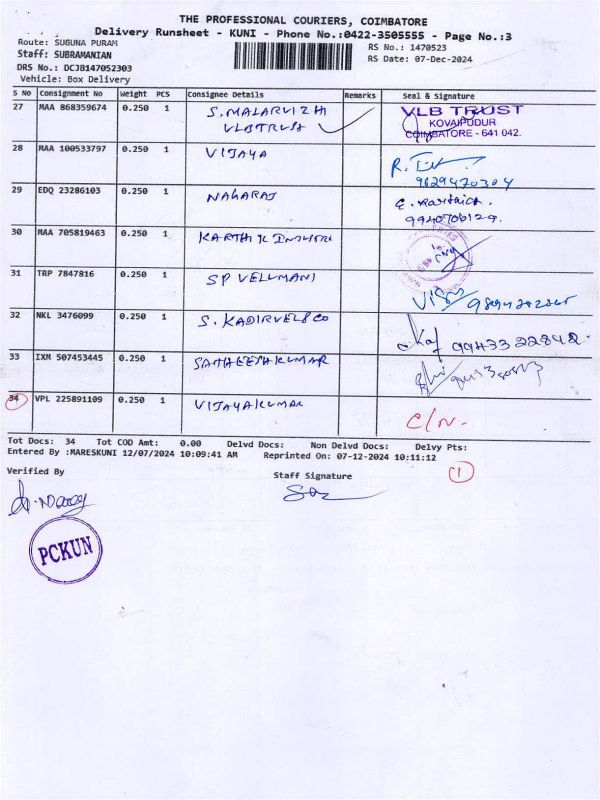 THE PROFESSIONAL COURIERS, COIMBATORE
Delivery Runsheet - KUNI - Phone No.:0422-3505555 - Page No.:3
Route: SUGUNA PURAM
RS No.: 1470523
Staff: SUBRAMANIAN
RS Date: 07-Dec-2024
DRS No.: DCJB147052303
Vehicle: Box Delivery
S No Consignment No Weight PCS Consignee Details Remarks Seal & Signature
27 MAA 868359674 0.250 1 S. MALARVIZHI VLB TRUST
VLB TRUST KOVAIPUDUR
COIMBATORE - 641 042.
28 MAA 100533797 0.250 1 VIJAYA
9629470304
29 EDQ 23286103 0.250 1 NAGARAJ
9940706129.
30 MAA 705819463 0.250 1 KARTHIK
31 TRP 7847816 0.250 1 SP VELUMANI
32 NKL 3476099 0.250 1 S. KADIRVEL & CO
9943322842
33 IXM 507453445 0.250 1 SATHEESHKUMAR
34 VPL 225891109 0.250 1 VIJAYAKUMAR C/N.
Tot Docs: 34 Tot COD Amt: 0.00 Delvd Docs: Non Delvd Docs: Delvy Pts:
Entered By :MARESKUNI 12/07/2024 10:09:41 AM Reprinted On: 07-12-2024 10:11:12
1
Verified By Staff Signature
PCKUN